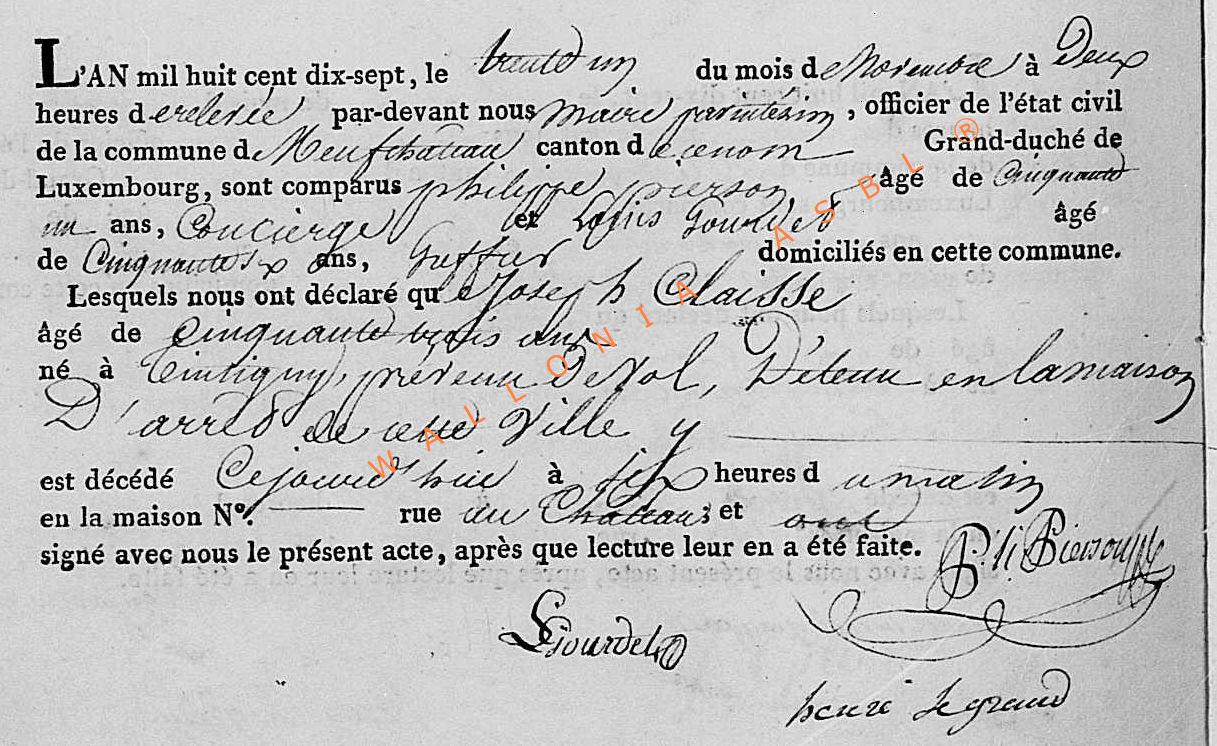 L'AN mil huit cent dix-sept, le trente un du mois de Novembre à Deux
heures de relevée par-devant nous maire par interim, officier de l'état civil
de la commune de Neufchateau canton d Grand-duché de
Luxembourg, sont comparus philippe pierson âgé de Cinquante
un ans, Concierge et Louis Gourdet âgé
de Cinquante six ans, domiciliés en cette commune.
Lesquels nous ont déclaré que Joseph Claisse
âgé de Cinquante trois ans
né à Tintigny, prévenu De vol, Détenu en la maison
D'arrêt de cette Ville y
est décédé Cejourd'hui à six heures d u matin
en la maison N°. rue du Chateau; et ont
signé avec nous le présent acte, après que lecture leur en a été faite.
Ph Pierson
L Gourdet
henri Legrand
WALLONIA ASBL ®